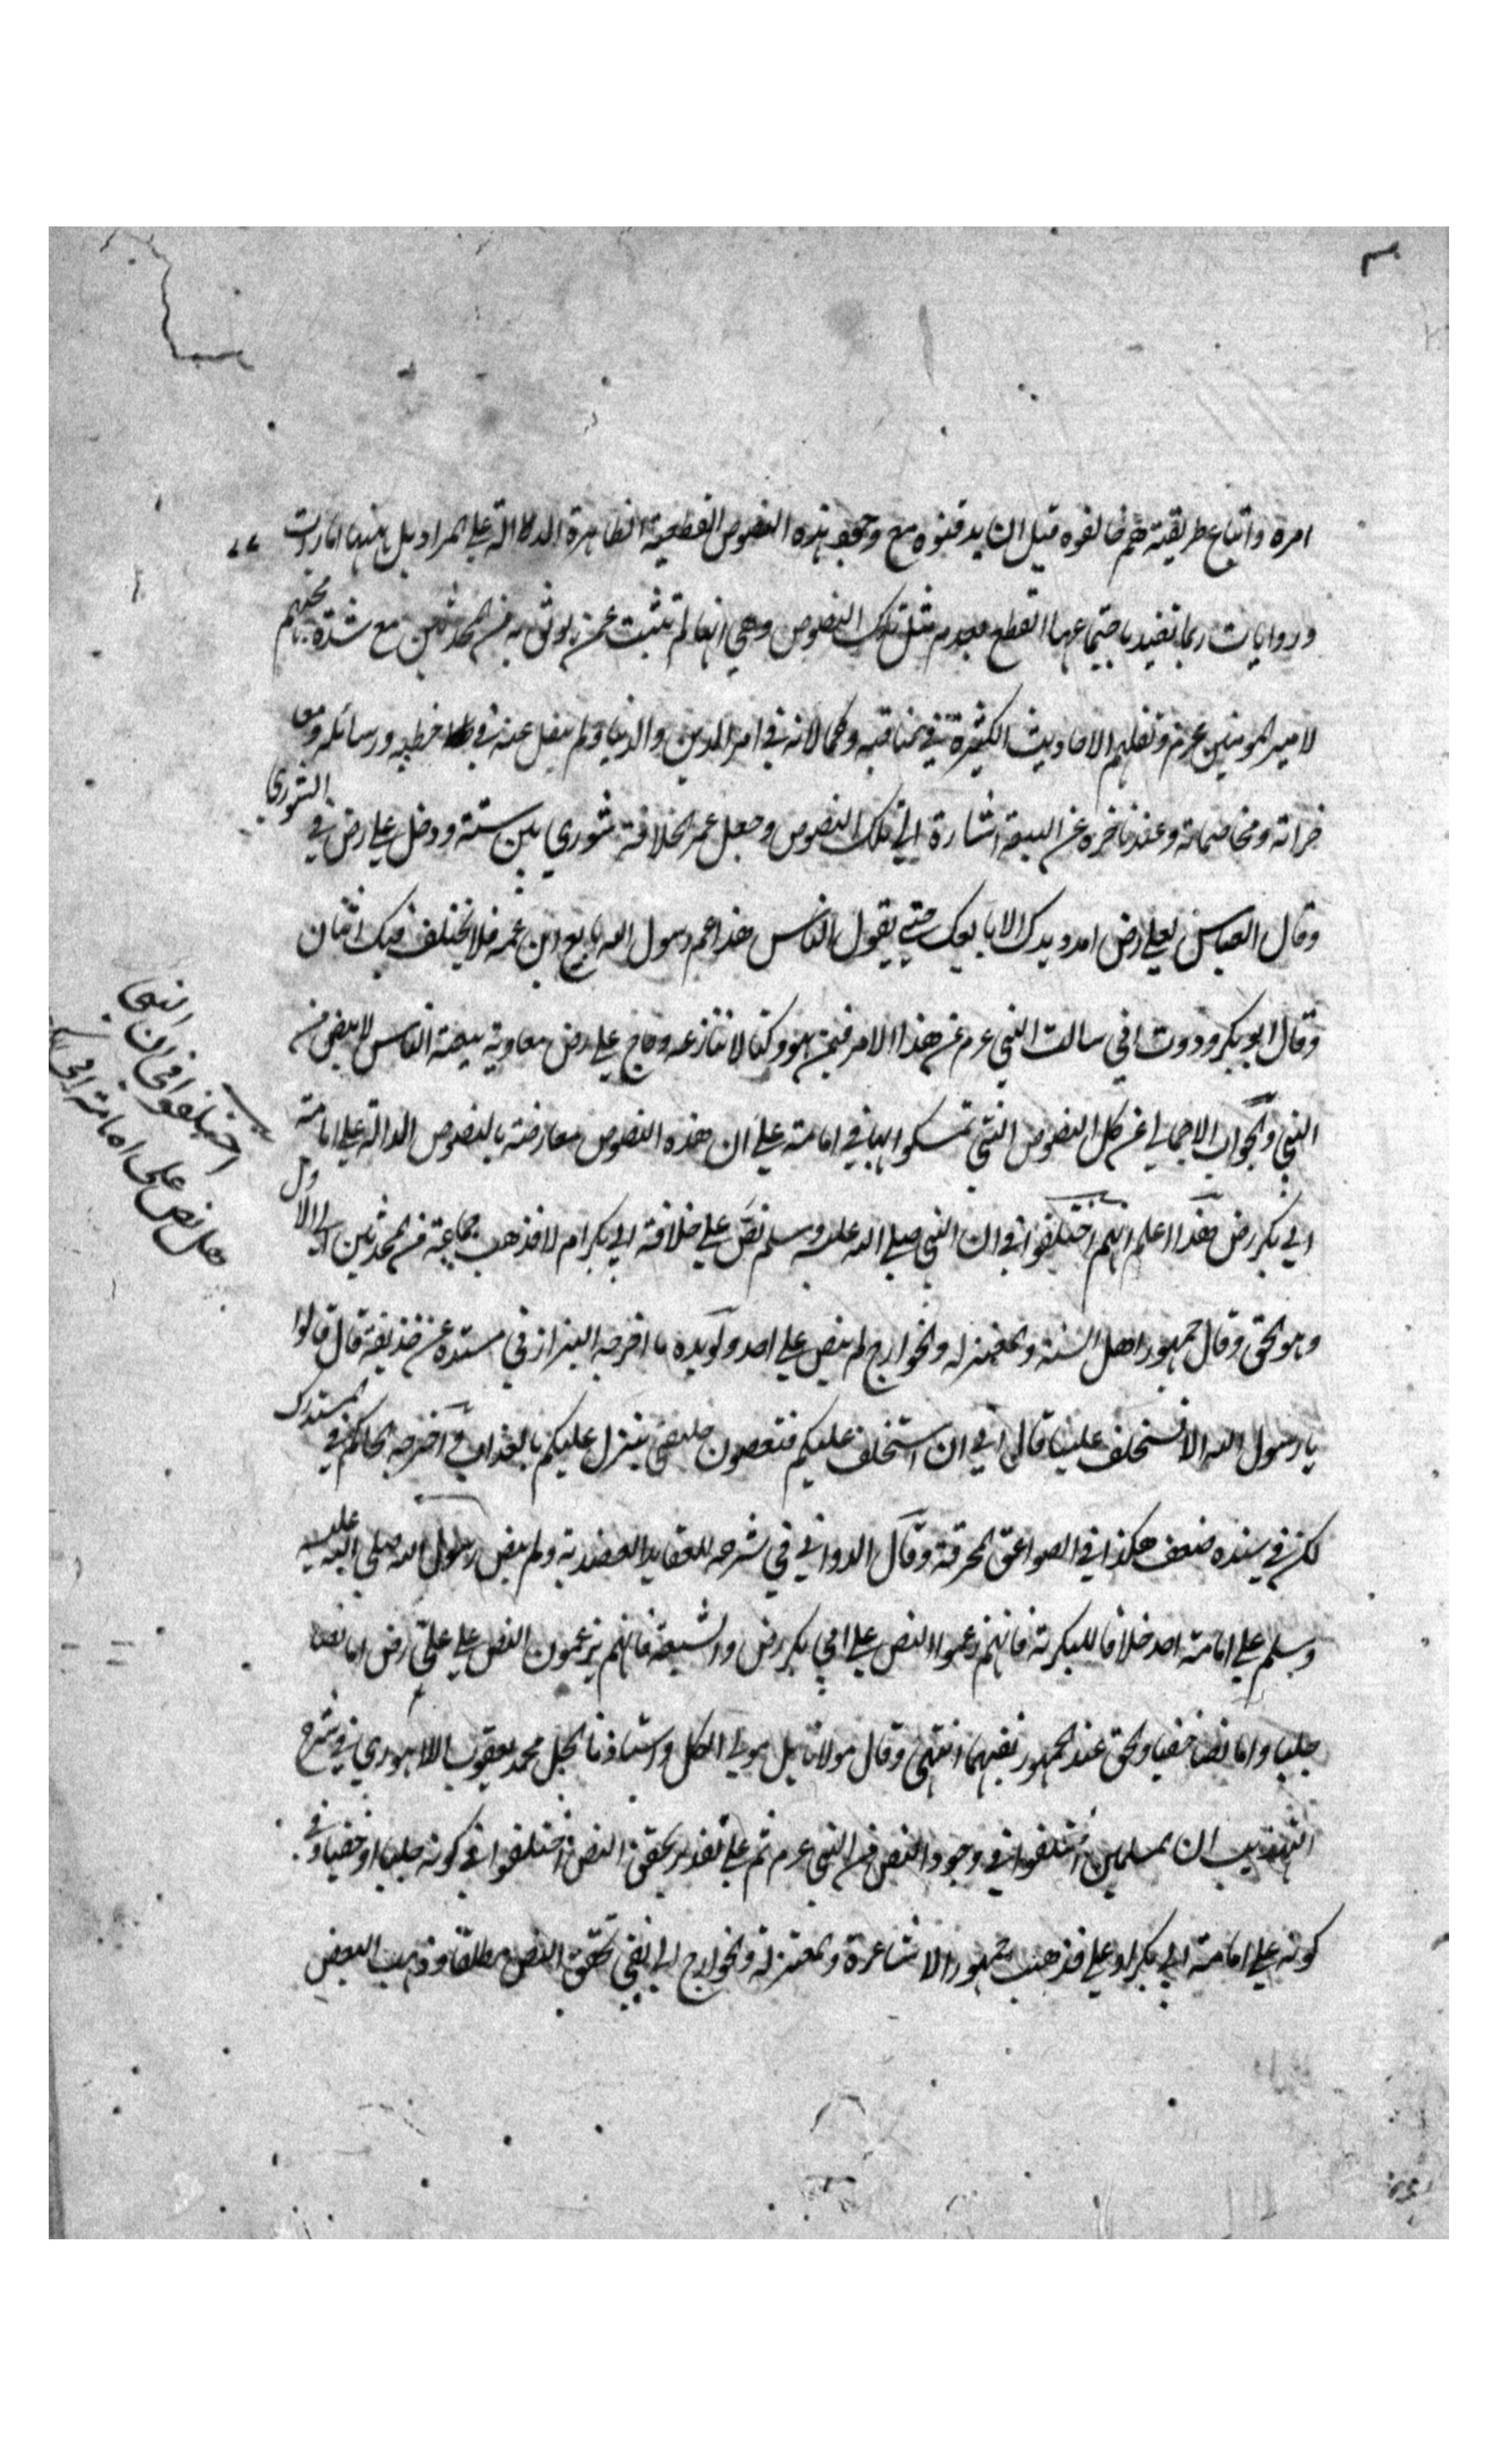 امره واتباع طريقته ثم خالفوه قبل ان يدفنوه مع وجود هذه النصوص القطعية الظاهرة الدلالة على المراد بل ههنا امارات
وروايات ربما تفيد باجتماعها القطع بعدم مثل تلك النصوص وهي انها لم تثبت عمن يوثق به من المحدثين مع شدة محبتهم
لامير المومنين عرم ونقلهم الاحاديث الكثيرة في مناقبه وكمالاته في امر الدين والدنيا ولم ينقل عنه في خطبه ورسائله ومفا
خراته ومخاصماته وعند تاخره عن البيعة اشارة الى تلك النصوص وجعل عمر الخلافة شورى بين ستة ودخل علي رض في الشورى
وقال العباس لعلي رض امدد يدك الابايعك حتى يقول الناس هذا عم رسول الله بايع ابن عمه فلا يختلف فيك اثنان
وقال ابو بكر وددت اني سالت النبي عرم عن هذا الامر فيمن هو وكنا لا ننازعه وحاج علي رض معاوية ببيعة الناس لا بنص من
النبي والجواب الاجمالي عن كل النصوص التي تمسكوا بها في امامة علي ان هذه النصوص معارضة بالنصوص الدالة على امامة
ابي بكر رض هذا اعلم انهم اختلفوا في ان النبي صلى الله عليه وسلم نص على خلافة ابي بكر ام لا فذهب جماعة من المحدثين الى الاول
وهو الحق وقال جمهور اهل السنة والمعتزله والخوارج لم ينص على احد ويؤيده ما اخرجه البزاز في مسنده عن حذيفة قال قالوا
يا رسول الله الا تستخلف علينا قال اني ان استخلف عليكم فتعصون خليفتي ينزل عليكم بالعذاب و اخرجه الحاكم في المستدرك
لكن في سنده ضعف هكذا في الصواعق المحرقة وقال الدواني في شرحه للعقايد العضدية ولم ينص رسول الله صلى الله عليه
وسلم على امامة احد خلافا للبكرية فانهم زعموا النص على ابي بكر رض والشيعة فانهم يزعمون النص على علي رض اما نصا
جليا واما نصا خفيا والحق عند الجمهور نفيهما انتهى وقال مولانا بل مولى الكل واستاذنا بجل محمد يعقوب اللاهوري في شرح
التهذيب ان المسلمين اختلفوا في وجود النص من النبي عرم ثم على تقدير تحقق النص اختلفوا في كونه جليا او خفيا وفي
كونه على امامة ابي بكر او علي فذهب جمهور الاشاعرة والمعتزلة والخوارج الى نفي تحقق النص مطلقا وذهب البعض
اختلفوا في ان النبي
هل نص على امامة ابي